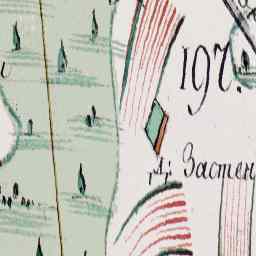 197.
"А" Застен